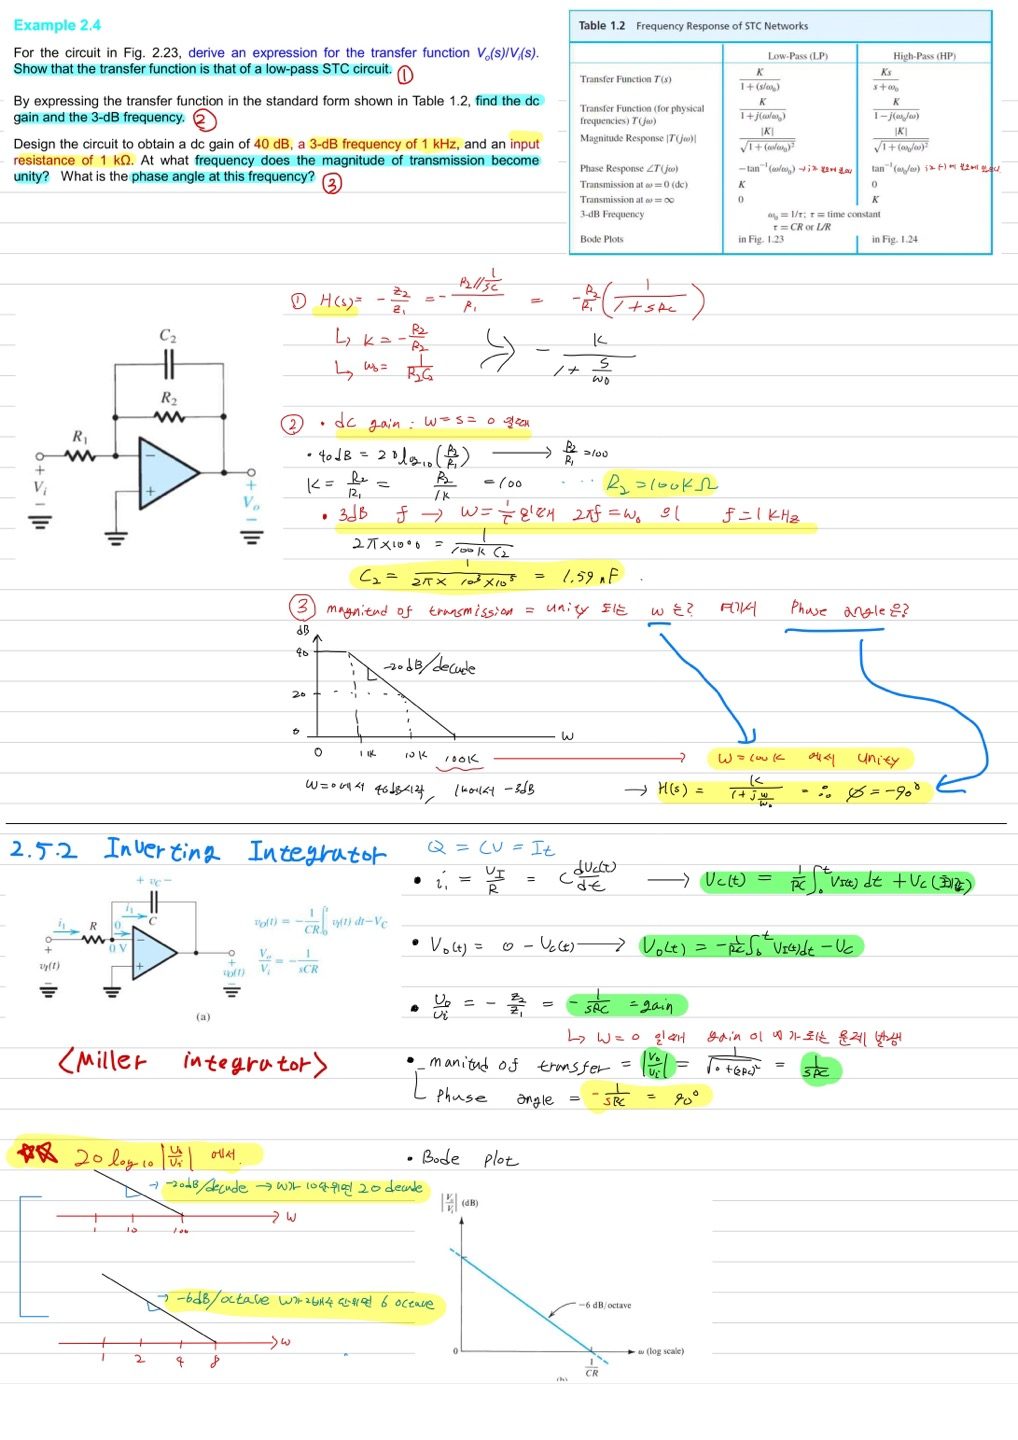 Example 2.4
For the circuit in Fig. 2.23, derive an expression for the transfer function Vo(s)/Vi(s).
Show that the transfer function is that of a low-pass STC circuit. ①
By expressing the transfer function in the standard form shown in Table 1.2, find the dc
gain and the 3-dB frequency. ②
Design the circuit to obtain a dc gain of 40 dB, a 3-dB frequency of 1 kHz, and an input
resistance of 1 kΩ. At what frequency does the magnitude of transmission become
unity? What is the phase angle at this frequency? ③
Table 1.2 Frequency Response of STC Networks
Low-Pass (LP) High-Pass (HP)
Transfer Function T(s) K/(1+(s/ω0)) Ks/(s+ω0)
Transfer Function (for physical
frequencies) T(jω) K/(1+j(ω/ω0)) K/(1−j(ω0/ω))
Magnitude Response |T(jω)| |K|/√(1+(ω/ω0)²) |K|/√(1+(ω0/ω)²)
Phase Response ∠T(jω) −tan⁻¹(ω/ω0) tan⁻¹(ω0/ω)
Transmission at ω = 0 (dc) K 0
Transmission at ω = ∞ 0 K
3-dB Frequency ω0 = 1/τ; τ ≡ time constant
τ = CR or L/R
Bode Plots in Fig. 1.23 in Fig. 1.24
① H(s) = -Z2/Z1 = -(R2//1/SC)/R1 = -R2/R1 (1/(1+SRC))
↳ K = -R2/R2
↳ ω0 = 1/(R2C2)
- K/(1+S/ω0)
C2
R2
R1
+
Vi
−
+
Vo
−
② • dc gain : W=S=0 일때
• 40dB = 20log10(R2/R1) → R2/R1 =100
K = R2/R1 = R2/1K =100 ... R2=100KΩ
• 3dB f → W=1/τ 일때 2πf=ω0 의 f=1KHz
2π×1000 = 1/(100K C2)
C2 = 1/(2π×10³×10⁵) = 1.59nF.
③ magnitud of transmission = unity 되는 w는? 여기서 Phase angle은?
dB
40
20
0
-20dB/decade
W
0 1K 10K 100K
W=100K 에서 Unity
W=0에서 40dB시작, 1K에서 -3dB
→ H(s) = K/(1+jω/ω0) = ∴ φ=-90°
2.5.2 Inverting Integrator
Q = CV = It
+ vC −
i1
C
i1
R
0
0 V
+
vI(t)
−
+
vO(t)
−
vO(t) = −1/CR ∫0^t vI(t) dt−VC
Vo/Vi = −1/sCR
(a)
• i1 = VI/R = C dVc(t)/dt → Vc(t) = 1/RC ∫0^t VI(t) dt + Vc
• Vo(t) = 0 - Vc(t) → Vo(t) = -1/RC ∫0^t VI(t)dt - Vc
• Vo/Vi = -Z2/Z1 = -1/SRC = gain
↳ W=0 일때 gain이 ∞가 되는 문제 발생
<Miller integrator>
• manitud of transfer = |Vo/Vi| = 1/√(0+(SRC)²) = 1/SRC
Phase angle = -1/SRC = 90°
☆☆ 20log10|Vo/Vi| 에서
→ -20dB/decade → W가 10단위면 20 decade
W
1 10 100
→ -6dB/octave W가 2배수 단위면 6 octave
W
1 2 4 8
• Bode plot
|Vo/Vi| (dB)
−6 dB/octave
0
ω (log scale)
1/CR